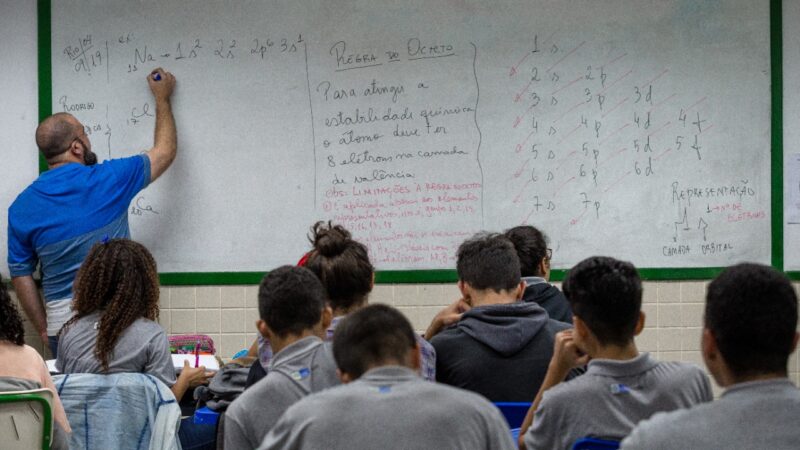 Rio, 04
09/19
Rodrigo
ex:
11Na - 1s² 2s² 2p⁶ 3s¹
17Cl
20Ca
Regra do Octeto
Para atingir a
estabilidade química
o átomo deve ter
8 elétrons na camada
de valência.
Obs: Limitações à regra do octeto
1s
2s 2p
3s 3p 3d
4s 4p 4d 4f
5s 5p 5d 5f
6s 6p 6d
7s 7p
Representação
1s¹ → Nº de
elétrons
camada orbital